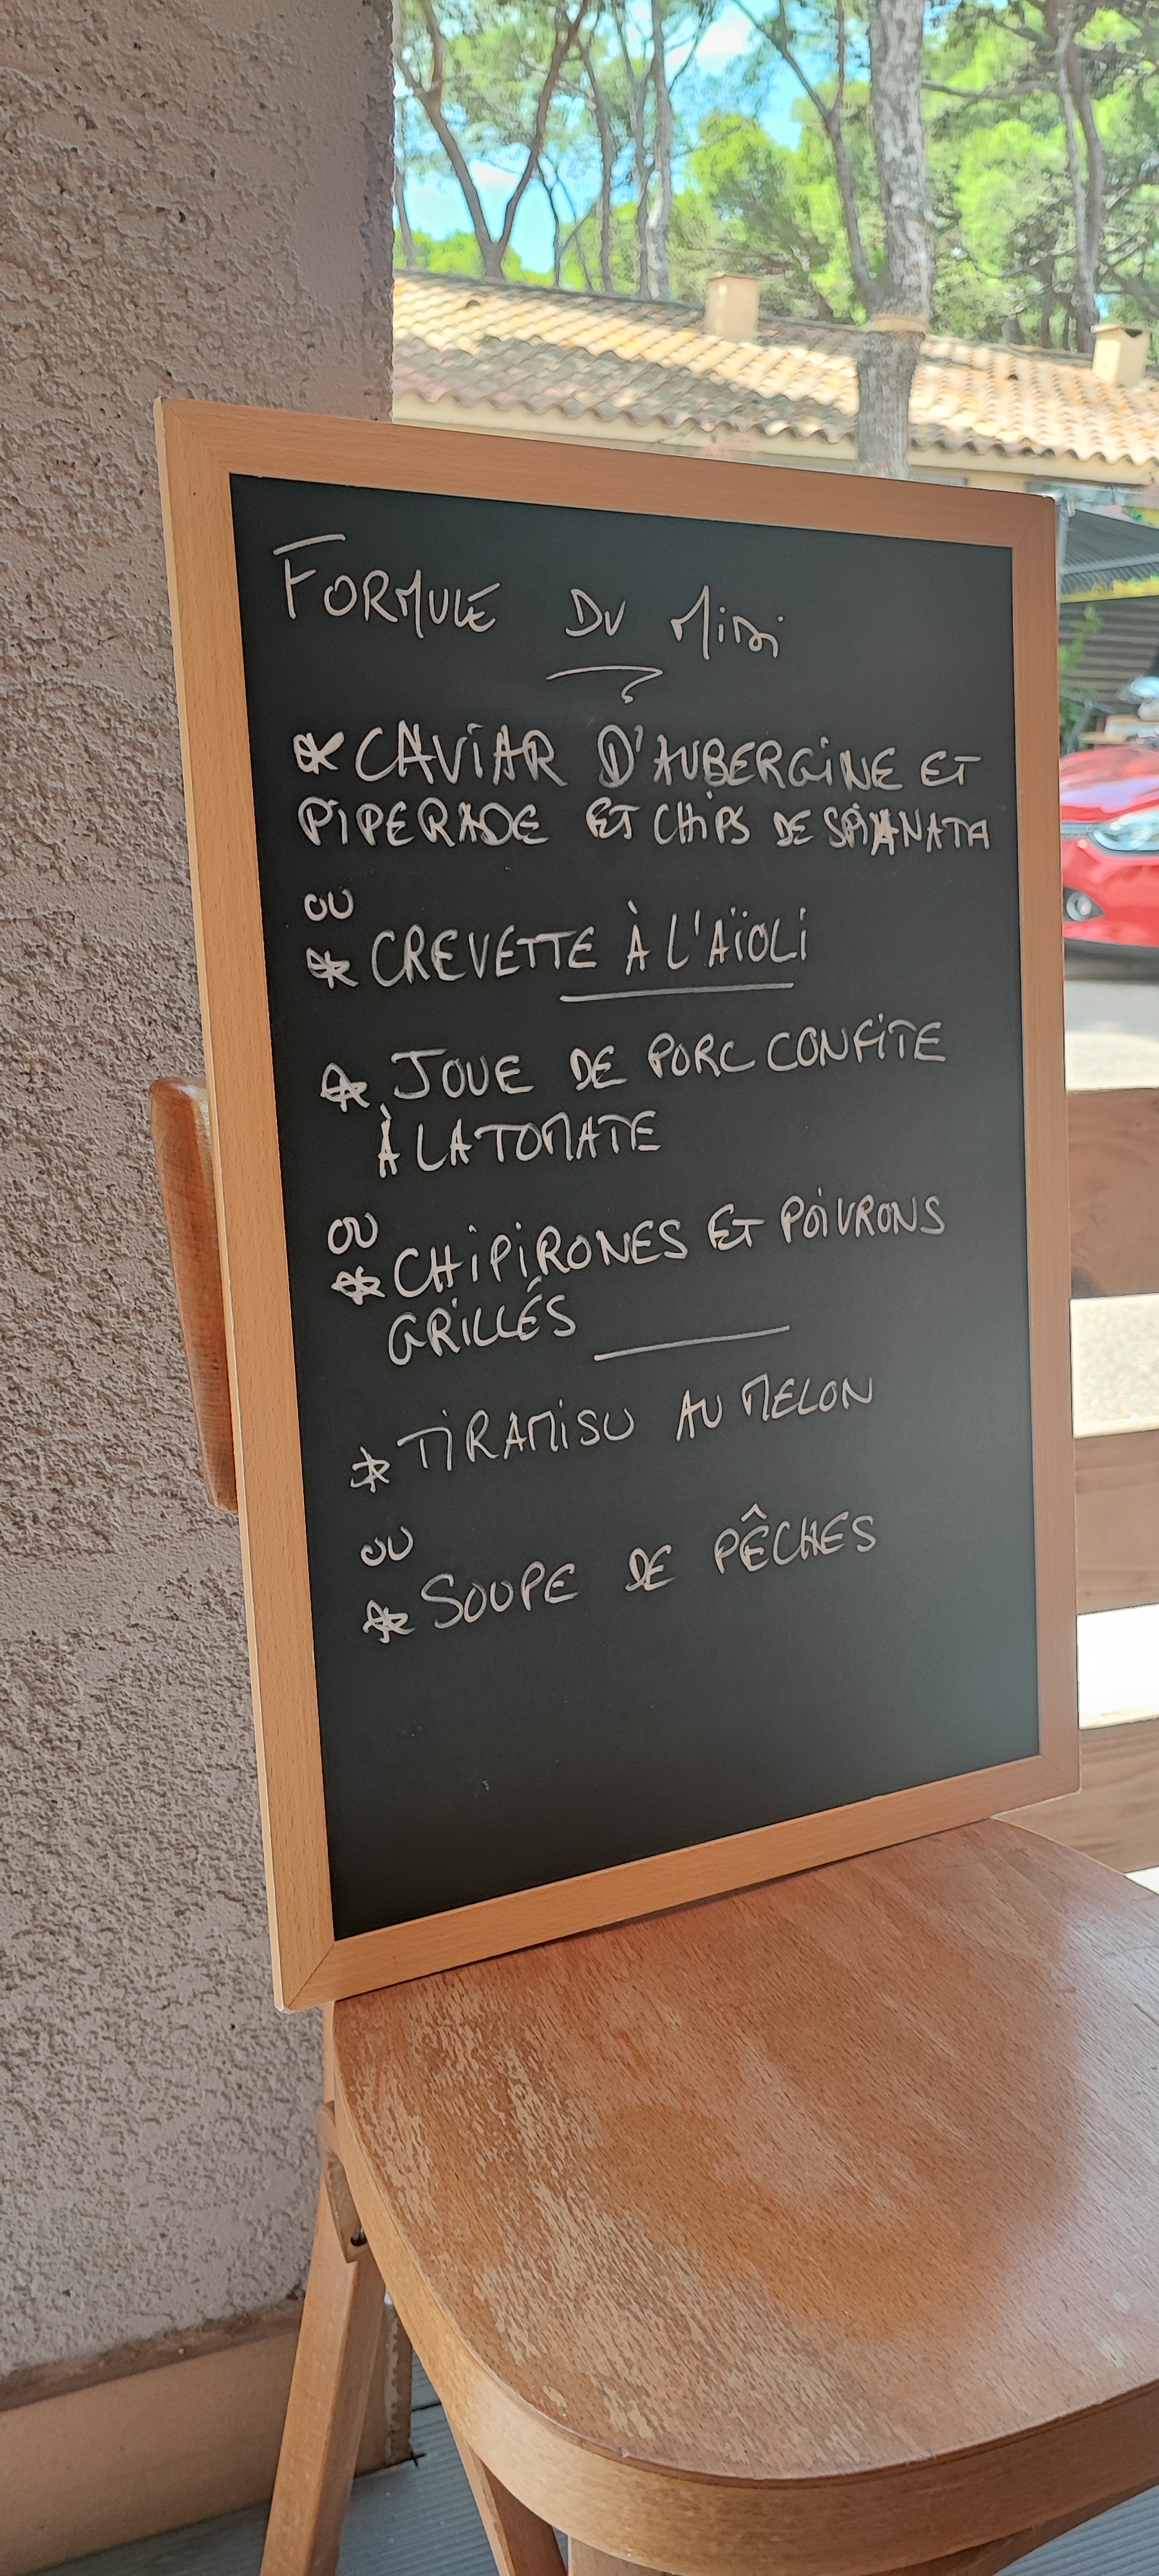 FORMULE DU MiDi
* CAViAR D'AUBERGiNE ET
PiPERADE ET CHiPS DE SPiANATA
OU
* CREVETTE À L'AÏOLi
* JOUE DE PORC CONFiTE
À LA TOMATE
OU
* CHiPiRONES ET POiVRONS
GRiLLÉS
* TiRAMiSU AU MELON
OU
* SOUPE DE PÊCHES